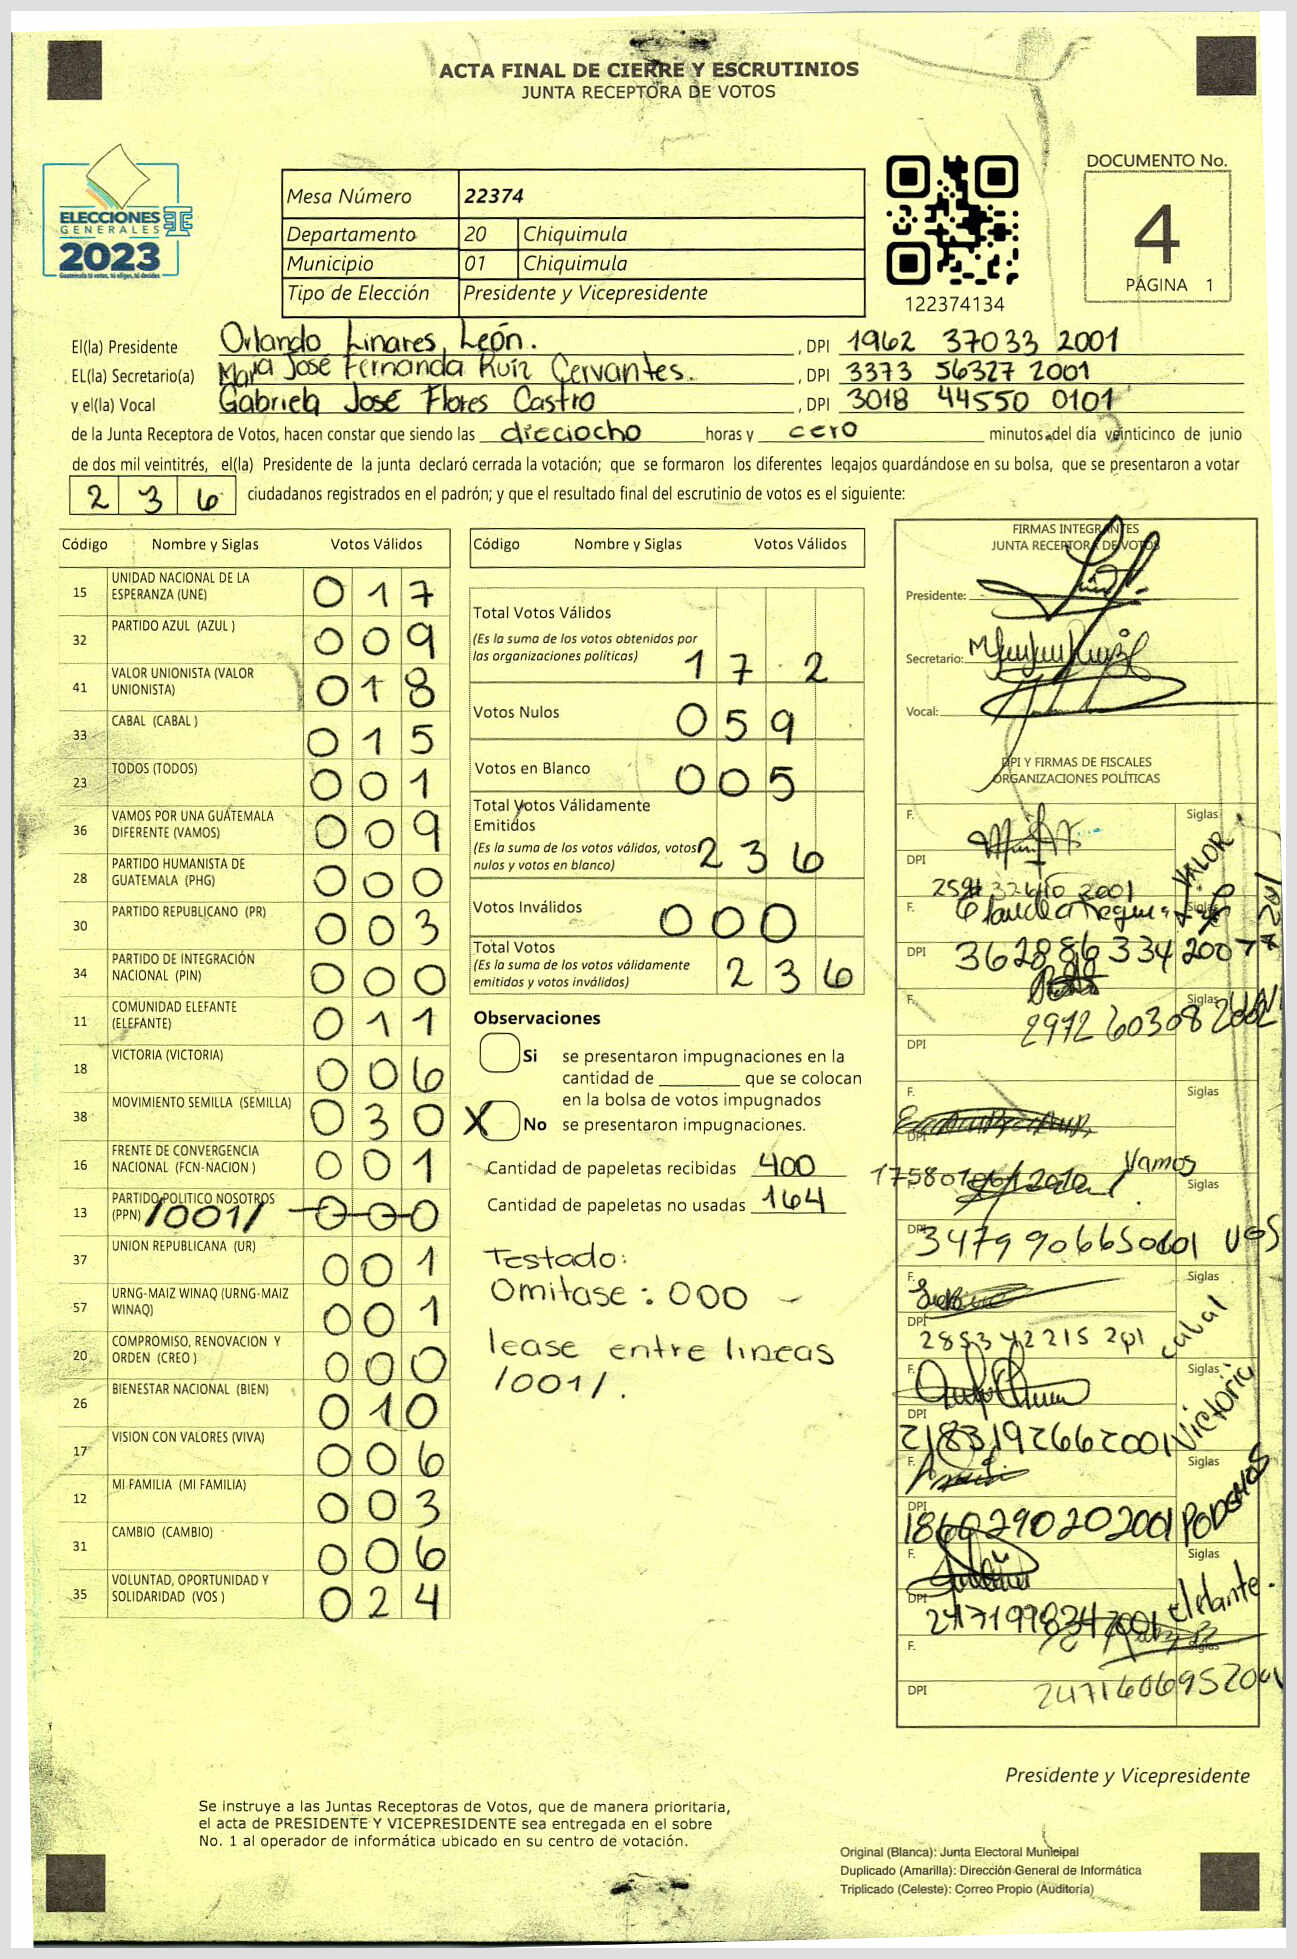 ACTA FINAL DE CIERRE Y ESCRUTINIOS
JUNTA RECEPTORA DE VOTOS
ELECCIONES
GENERALES
2023
Guatemala tú votas, tú eliges, tú decides
Mesa Número 22374
Departamento 20 Chiquimula
Municipio 01 Chiquimula
Tipo de Elección Presidente y Vicepresidente
122374134
DOCUMENTO No.
4
PÁGINA 1
El(la) Presidente Orlando Linares León. , DPI 1962 37033 2001
EL(la) Secretario(a) María José Fernanda Ruíz Cervantes. , DPI 3373 56327 2001
y el(la) Vocal Gabriela José Flores Castro , DPI 3018 44550 0101
de la Junta Receptora de Votos, hacen constar que siendo las dieciocho horas y cero minutos del día veinticinco de junio
de dos mil veintitrés, el(la) Presidente de la junta declaró cerrada la votación; que se formaron los diferentes legajos guardándose en su bolsa, que se presentaron a votar
2 3 6 ciudadanos registrados en el padrón; y que el resultado final del escrutinio de votos es el siguiente:
Código Nombre y Siglas Votos Válidos
15 UNIDAD NACIONAL DE LA ESPERANZA (UNE) 0 1 7
32 PARTIDO AZUL (AZUL ) 0 0 9
41 VALOR UNIONISTA (VALOR UNIONISTA) 0 1 8
33 CABAL (CABAL ) 0 1 5
23 TODOS (TODOS) 0 0 1
36 VAMOS POR UNA GUATEMALA DIFERENTE (VAMOS) 0 0 9
28 PARTIDO HUMANISTA DE GUATEMALA (PHG) 0 0 0
30 PARTIDO REPUBLICANO (PR) 0 0 3
34 PARTIDO DE INTEGRACIÓN NACIONAL (PIN) 0 0 0
11 COMUNIDAD ELEFANTE (ELEFANTE) 0 1 1
18 VICTORIA (VICTORIA) 0 0 6
38 MOVIMIENTO SEMILLA (SEMILLA) 0 3 0
16 FRENTE DE CONVERGENCIA NACIONAL (FCN-NACION ) 0 0 1
13 PARTIDO POLITICO NOSOTROS (PPN) /001/ 0 0 0
37 UNION REPUBLICANA (UR) 0 0 1
57 URNG-MAIZ WINAQ (URNG-MAIZ WINAQ) 0 0 1
20 COMPROMISO, RENOVACION Y ORDEN (CREO ) 0 0 0
26 BIENESTAR NACIONAL (BIEN) 0 1 0
17 VISION CON VALORES (VIVA) 0 0 6
12 MI FAMILIA (MI FAMILIA) 0 0 3
31 CAMBIO (CAMBIO) 0 0 6
35 VOLUNTAD, OPORTUNIDAD Y SOLIDARIDAD (VOS ) 0 2 4
Código Nombre y Siglas Votos Válidos
Total Votos Válidos
(Es la suma de los votos obtenidos por
las organizaciones políticas) 1 7 2
Votos Nulos 0 5 9
Votos en Blanco 0 0 5
Total Votos Válidamente
Emitidos
(Es la suma de los votos válidos, votos
nulos y votos en blanco) 2 3 6
Votos Inválidos 0 0 0
Total Votos
(Es la suma de los votos válidamente
emitidos y votos inválidos) 2 3 6
Observaciones
Si se presentaron impugnaciones en la
cantidad de ________ que se colocan
en la bolsa de votos impugnados
X No se presentaron impugnaciones.
Cantidad de papeletas recibidas 400
Cantidad de papeletas no usadas 164
Testado:
Omitase: 000 -
lease entre lineas
/001/.
FIRMAS INTEGRANTES
JUNTA RECEPTORA DE VOTOS
Presidente:
Secretario:
Vocal:
DPI Y FIRMAS DE FISCALES
ORGANIZACIONES POLÍTICAS
F. Siglas
DPI
VALOR
F. Siglas
DPI 362886334 2007
F. Siglas
2972 60308
DPI
F. Siglas
DPI
Vamos
F. Siglas
DPI 3479906650101 VOS
F. Siglas
DPI
2853 42215 2001 cabal
F. Siglas
DPI
2183192662001 Victoria
F. Siglas
DPI
1860290202001 PODEMOS
F. Siglas
DPI
elefante.
F. Siglas
DPI 2471606952001
Presidente y Vicepresidente
Se instruye a las Juntas Receptoras de Votos, que de manera prioritaria,
el acta de PRESIDENTE Y VICEPRESIDENTE sea entregada en el sobre
No. 1 al operador de informática ubicado en su centro de votación.
Original (Blanca): Junta Electoral Municipal
Duplicado (Amarilla): Dirección General de Informática
Triplicado (Celeste): Correo Propio (Auditoría)